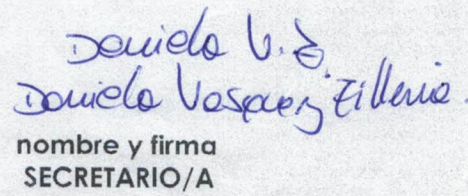 Daniela V. Z.
Daniela Vasquez Zillenia.
nombre y firma
SECRETARIO/A